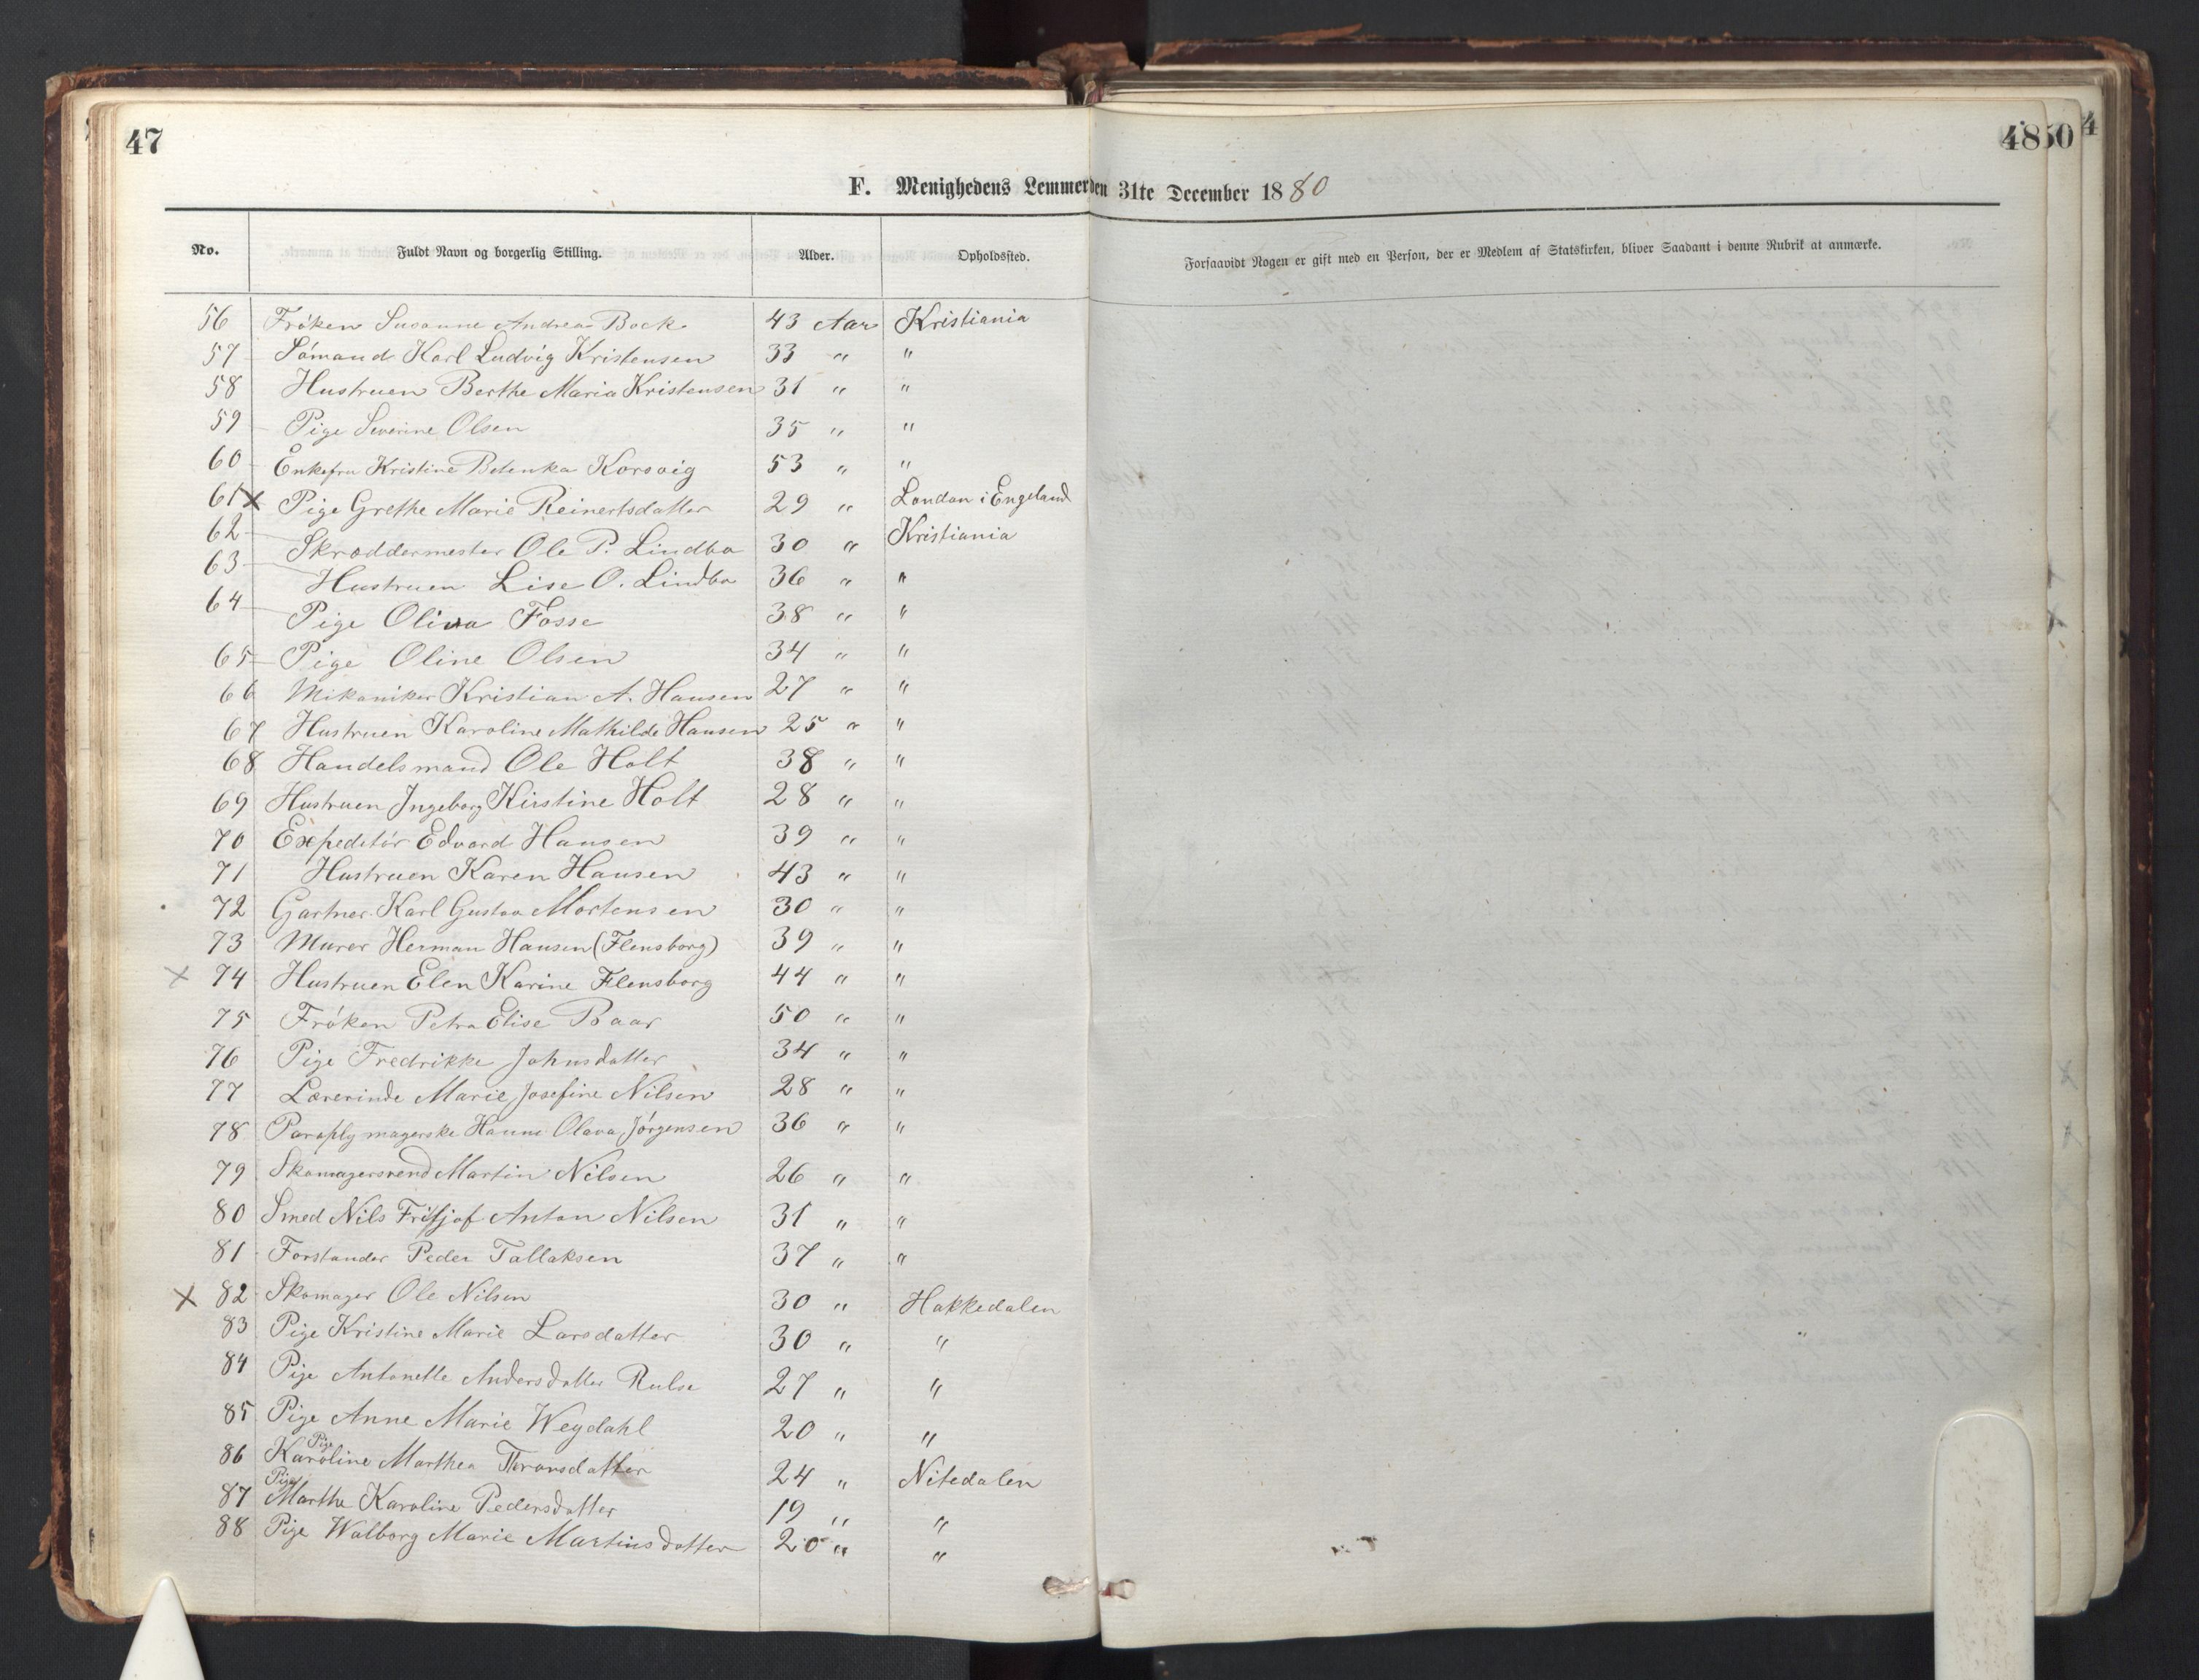 47
4850
4
F. Menighedens Lemmer den 31te December 1880
No. Fuldt Navn og borgerlig Stilling. Alder. Opholdssted. Forsaavidt Nogen er gift med en Person, der er Medlem af Statskirken, bliver Saadant i denne Rubrik at anmærke.
56 Frøken Susanne Andrea Bock 43 Aar Kristiania
57 Sømand Karl Ludvig Kristensen 33 " "
58 Hustruen Berthe Maria Kristensen 31 " "
59 Pige Severine Olsen 35 " "
60 Enkefru Kristine Korsvig 53 " "
61 x Pige Grethe Marie Reinertsdatter 29 " London i Engeland
62 Skræddermester Ole P. Lindbo 30 " Kristiania
63 Hustruen Lise O. Lindbo 36 " "
64 Pige Oliva Fosse 38 " "
65 Pige Oline Olsen 34 " "
66 Mikaniker Kristian A. Hansen 27 " "
67 Hustruen Karoline Mathilde Hansen 25 " "
68 Handelsmand Ole Holt 38 " "
69 Hustruen Ingeborg Kirstine Holt 28 " "
70 Expeditør Edvard Hansen 39 " "
71 Hustruen Karen Hansen 43 " "
72 Gartner Karl Gustav Mortensen 30 " "
73 Murer Herman Hansen (Flensborg) 39 " "
x 74 Hustruen Elen Karine Flensborg 44 " "
75 Frøken Petra Elise Baar 50 " "
76 Pige Fredrikke Johnsdatter 34 " "
77 Lærerinde Marie Josefine Nilsen 28 " "
78 Paraplymagerske Hanne Olava Jørgensen 36 " "
79 Skomagersvend Martin Nilsen 26 " "
80 Smed Nils Fritjof Anton Nilsen 31 " "
81 Forstander Peder Tallaksen 37 " "
x 82 Skomager Ole Nilsen 30 " Hakkedalen
83 Pige Kristine Marie Larsdatter 30 " "
84 Pige Antonette Andersdatter 27 " "
85 Pige Anne Marie Weydahl 20 " "
86 Pige Karoline Marthea 24 " Nitedalen
87 Pige Marthe Karoline Pedersdatter 19 " "
88 Pige Walborg Marie Martinsdatter 20 " "